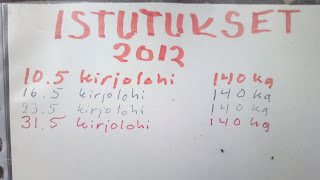 ISTUTUKSET
2012
10.5 kirjolohi 140 kg
16.5 kirjolohi 140 kg
23.5 kirjolohi 140 kg
31.5 kirjolohi 140 kg